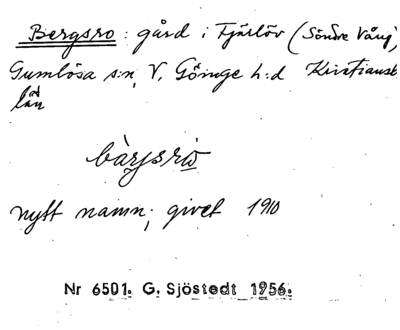 Bergsro : gård i Fjärlöv (Söndre Vång)
Gumlösa s:n, V. Göinge h:d Kristiansta
län
bärjsro
nytt namn; givet 1910
Nr 6501. G. Sjöstedt 1956.